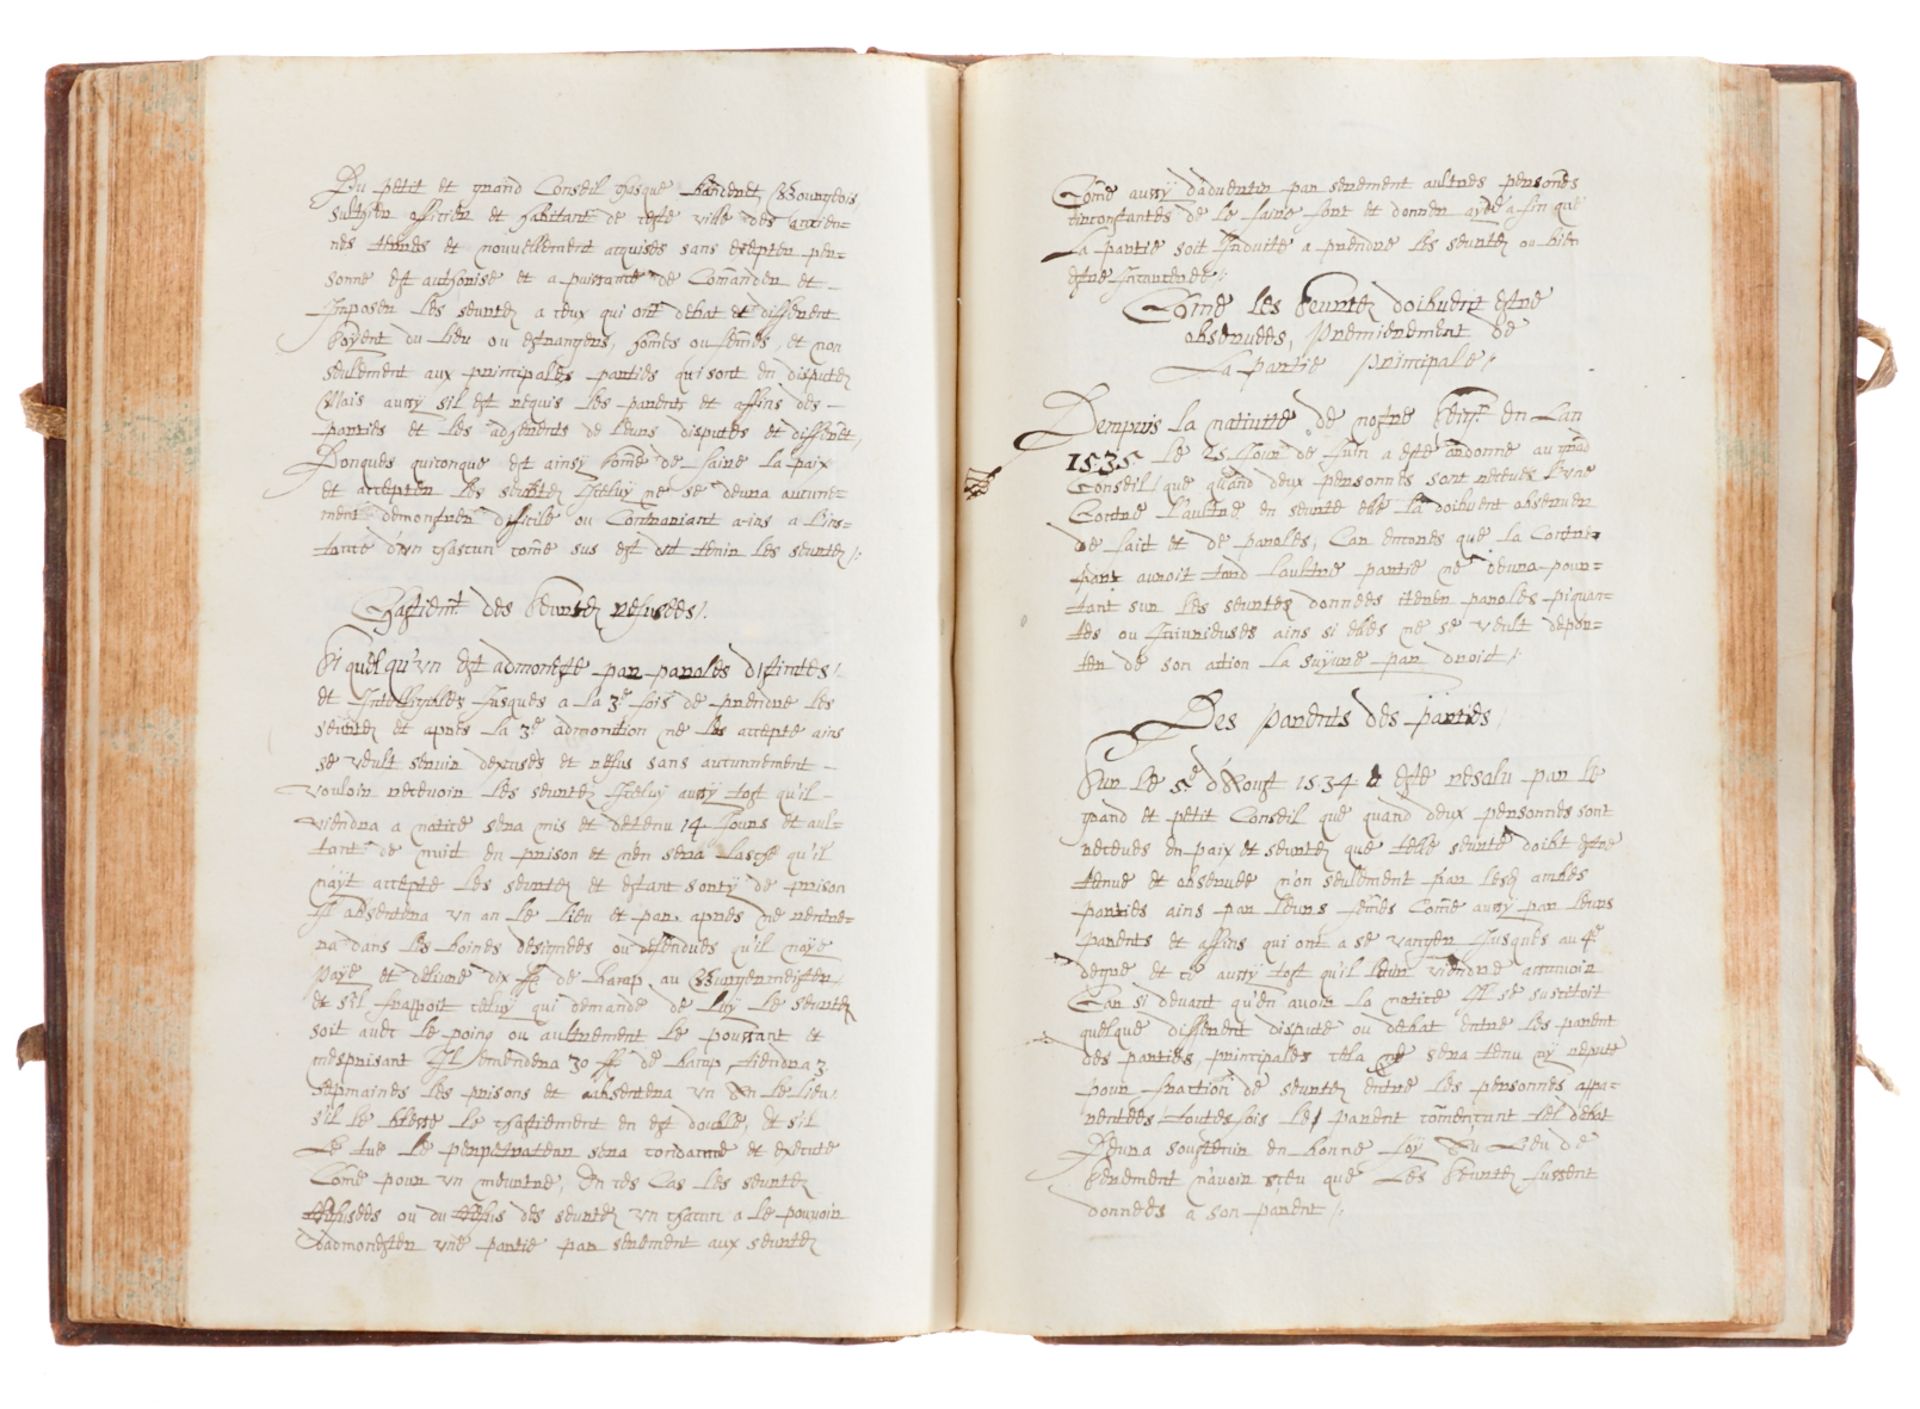 Du petit et grand Conseil chasque banderet Bourgeois
subthien officier et habitant de ceste ville des antien=
nes terres et nouvellement acquises sans exepter per=
sonne est authorise et a puissance de Com̄ander et
Imposer les seurtez a ceux qui ont debat et different
Soyent du lieu ou estrangers, hom̄es ou fem̄es, et non
seulement aux principales parties qui sont en disputes
Mais aussy sil est requis les parents et affins des
parties et les adherents de leurs disputes et differēt,
Donques quiconque est ainsy som̄e de faire la paix
et accepter les seurtez Iceluy ne se devra aucune=
ment demonstrer difficile ou Contrariant ains a l'ins=
tance d'vn chascun com̄e sus est dit tenir les seurtez /:
Chastiemt. des Seurtez refusees /:
Si quelqu'vn est admoneste par paroles distinctes /
et Intelligibles Jusques a la 3e fois de prendre les
seurtez et apres la 3e admonition ne les accepte ains
se veult servir dexcuses et refus sans aucunnement
vouloir recevoir les seurtez Iceluy aussy tost qu'il
viendra a notice sera mis et detenu 14 Jours et aul=
tant de nuict en prison et n'en sera lasche qu'il
n'ayt accepte les seurtez et estant sorty de prison
Il absentera vn an le lieu et par apres ne rentre=
ra dans les boines designees ou defendues qu'il n'aye
Paye et delivre dix ff de bamp au Burgermeister /
et s'il frappoit celuy qui demande de luy le seurtez
soit avec le poing ou aultrement le poussant et
mesprisant Il emendera 30 ff de bamp, tiendra 3
sepmaines les prisons et absentera vn An le lieu
s'il le blesse le chastiement en est double, Et s'il
Le tue le perpetrateur sera condamne et execute
Com̄e pour vn meurtre, En ces Cas les seurtez
refusees ou du refus des seurtez vn chacun a le pouvoir
Dadmonester vne partie par serement aux seurtez
Com̄e aussy dadvertir par serement aultres persōnes
circonstantes de le faire fort et donner ayde a fin que
La partie soit Induite a prendre les seurtez ou bien
estre Incarceree /:
Com̄e les Seurtez doibvent estre
observees, premierement de
La partie principale /:
Dempuis la nativitte de nostre Seigr. en Lan
1535. Le 25 Jour de Juin a este ordonne au grād
Conseil / que quand deux personnes sont receues l'vne
Contre l'aultre en seurte elle la doibvent observer
de faict et de paroles, Car encores que la Contre=
part auroit tord laultre partie ne devra pour=
tant sur les seurtez donnees iterer paroles piquan=
tes ou Iniurieuses ains si elles ne se veult depor=
ter de son action la suyvre par droict /:
Des parents des parties /
Sur le 5e d'Aoust 1534 a este resolu par le
grand et petit Conseil que quand deux personnes sont
receues en paix et seurtez que telle seurte doibt estre
tenue et observee n'on seulement par lesq ambes
parties ains par leurs fem̄es Com̄e aussy par leurs
parents et affins qui ont a se vanger Jusques au 4e
degre et ce aussy tost qu'il leur viendre a
Car si devant qu'en avoir la notice Il se suscitoit
quelque different dispute ou debat entre les parent
des parties, principales cela ne sera tenu ny repute
pour fraction de seurtez entre les personnes appa=
rentees / toutesfois le parent com̄encant tel debat
Devra soustenir en bonne foy Au Lieu de
Serement n'avoir sceu que Les Seurtez fussent
donnees a son parent /: